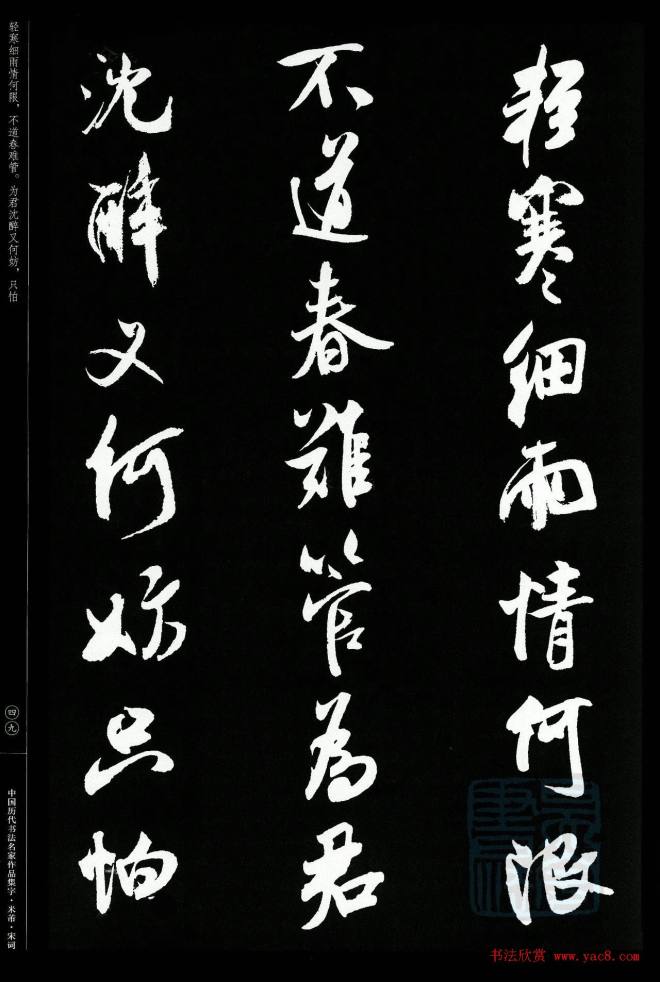 轻寒细雨情何限
不道春难管為君
沈醉又何妨只怕
轻寒细雨情何限，不道春难管。为君沈醉又何妨，只怕
四九
中国历代书法名家作品集字·米芾·宋词
书法欣赏 www.yac8.com